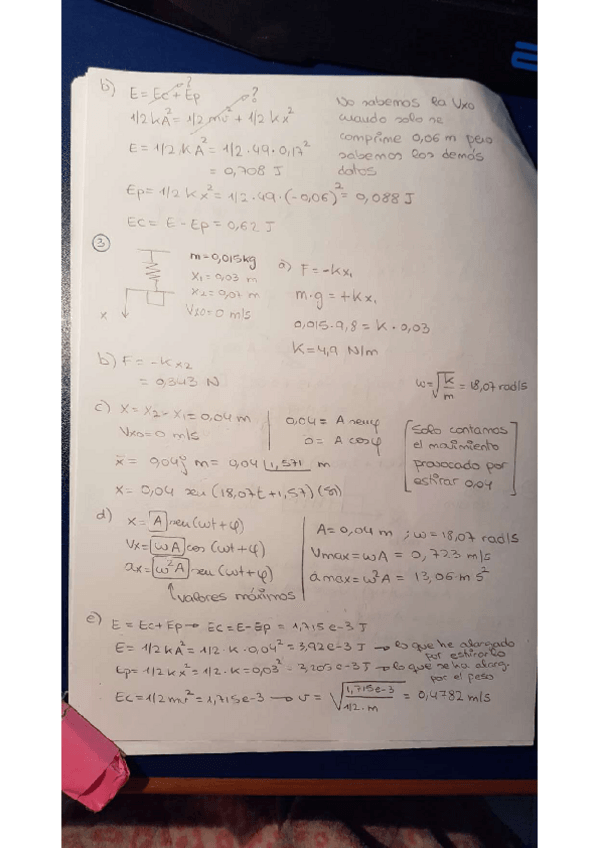 b) E = Ec + Ep ?
1/2 kA² = 1/2 mv² + 1/2 kx² ?
E = 1/2 k A² = 1/2 · 49 · 0,17²
= 0,708 J
No sabemos la Vxo
cuando solo se
comprime 0,06 m pero
sabemos los demás
datos
Ep = 1/2 kx² = 1/2 · 49 · (-0,06)² = 0,088 J
Ec = E - Ep = 0,62 J
③
m = 0,015 kg
x₁ = 0,03 m
x₂ = 0,07 m
Vxo = 0 m/s
x
a) F = -Kx₁
m·g = +Kx₁
0,015 · 9,8 = K · 0,03
K = 4,9 N/m
b) F = -K x₂
= 0,343 N
ω = √(k/m) = 18,07 rad/s
c) x = x₂ - x₁ = 0,04 m
Vxo = 0 m/s
0,04 = A sen φ
0 = A cos φ
[Solo contamos
el movimiento
provocado por
estirar 0,04]
x = 0,04j m = 0,04 |1,571 m
x = 0,04 sen (18,07t + 1,57) (SI)
d) x = A sen (ωt + φ)
Vx = ωA cos (ωt + φ)
ax = ω²A sen (ωt + φ)
valores máximos
A = 0,04 m ; ω = 18,07 rad/s
Vmax = ωA = 0,723 m/s
amax = ω²A = 13,06 m s²
e) E = Ec + Ep → Ec = E - Ep = 1,715 e-3 J
E = 1/2 kA² = 1/2 · K · 0,04² = 3,92 e-3 J → lo que he alargado
por estirarlo
Ep = 1/2 kx² = 1/2 · K = 0,03² = 2,205 e-3 J → lo que se ha alarg.
por el peso
Ec = 1/2 mv² = 1,715 e-3 → v = √(1,715 e-3 / 1/2 · m) = 0,4782 m/s